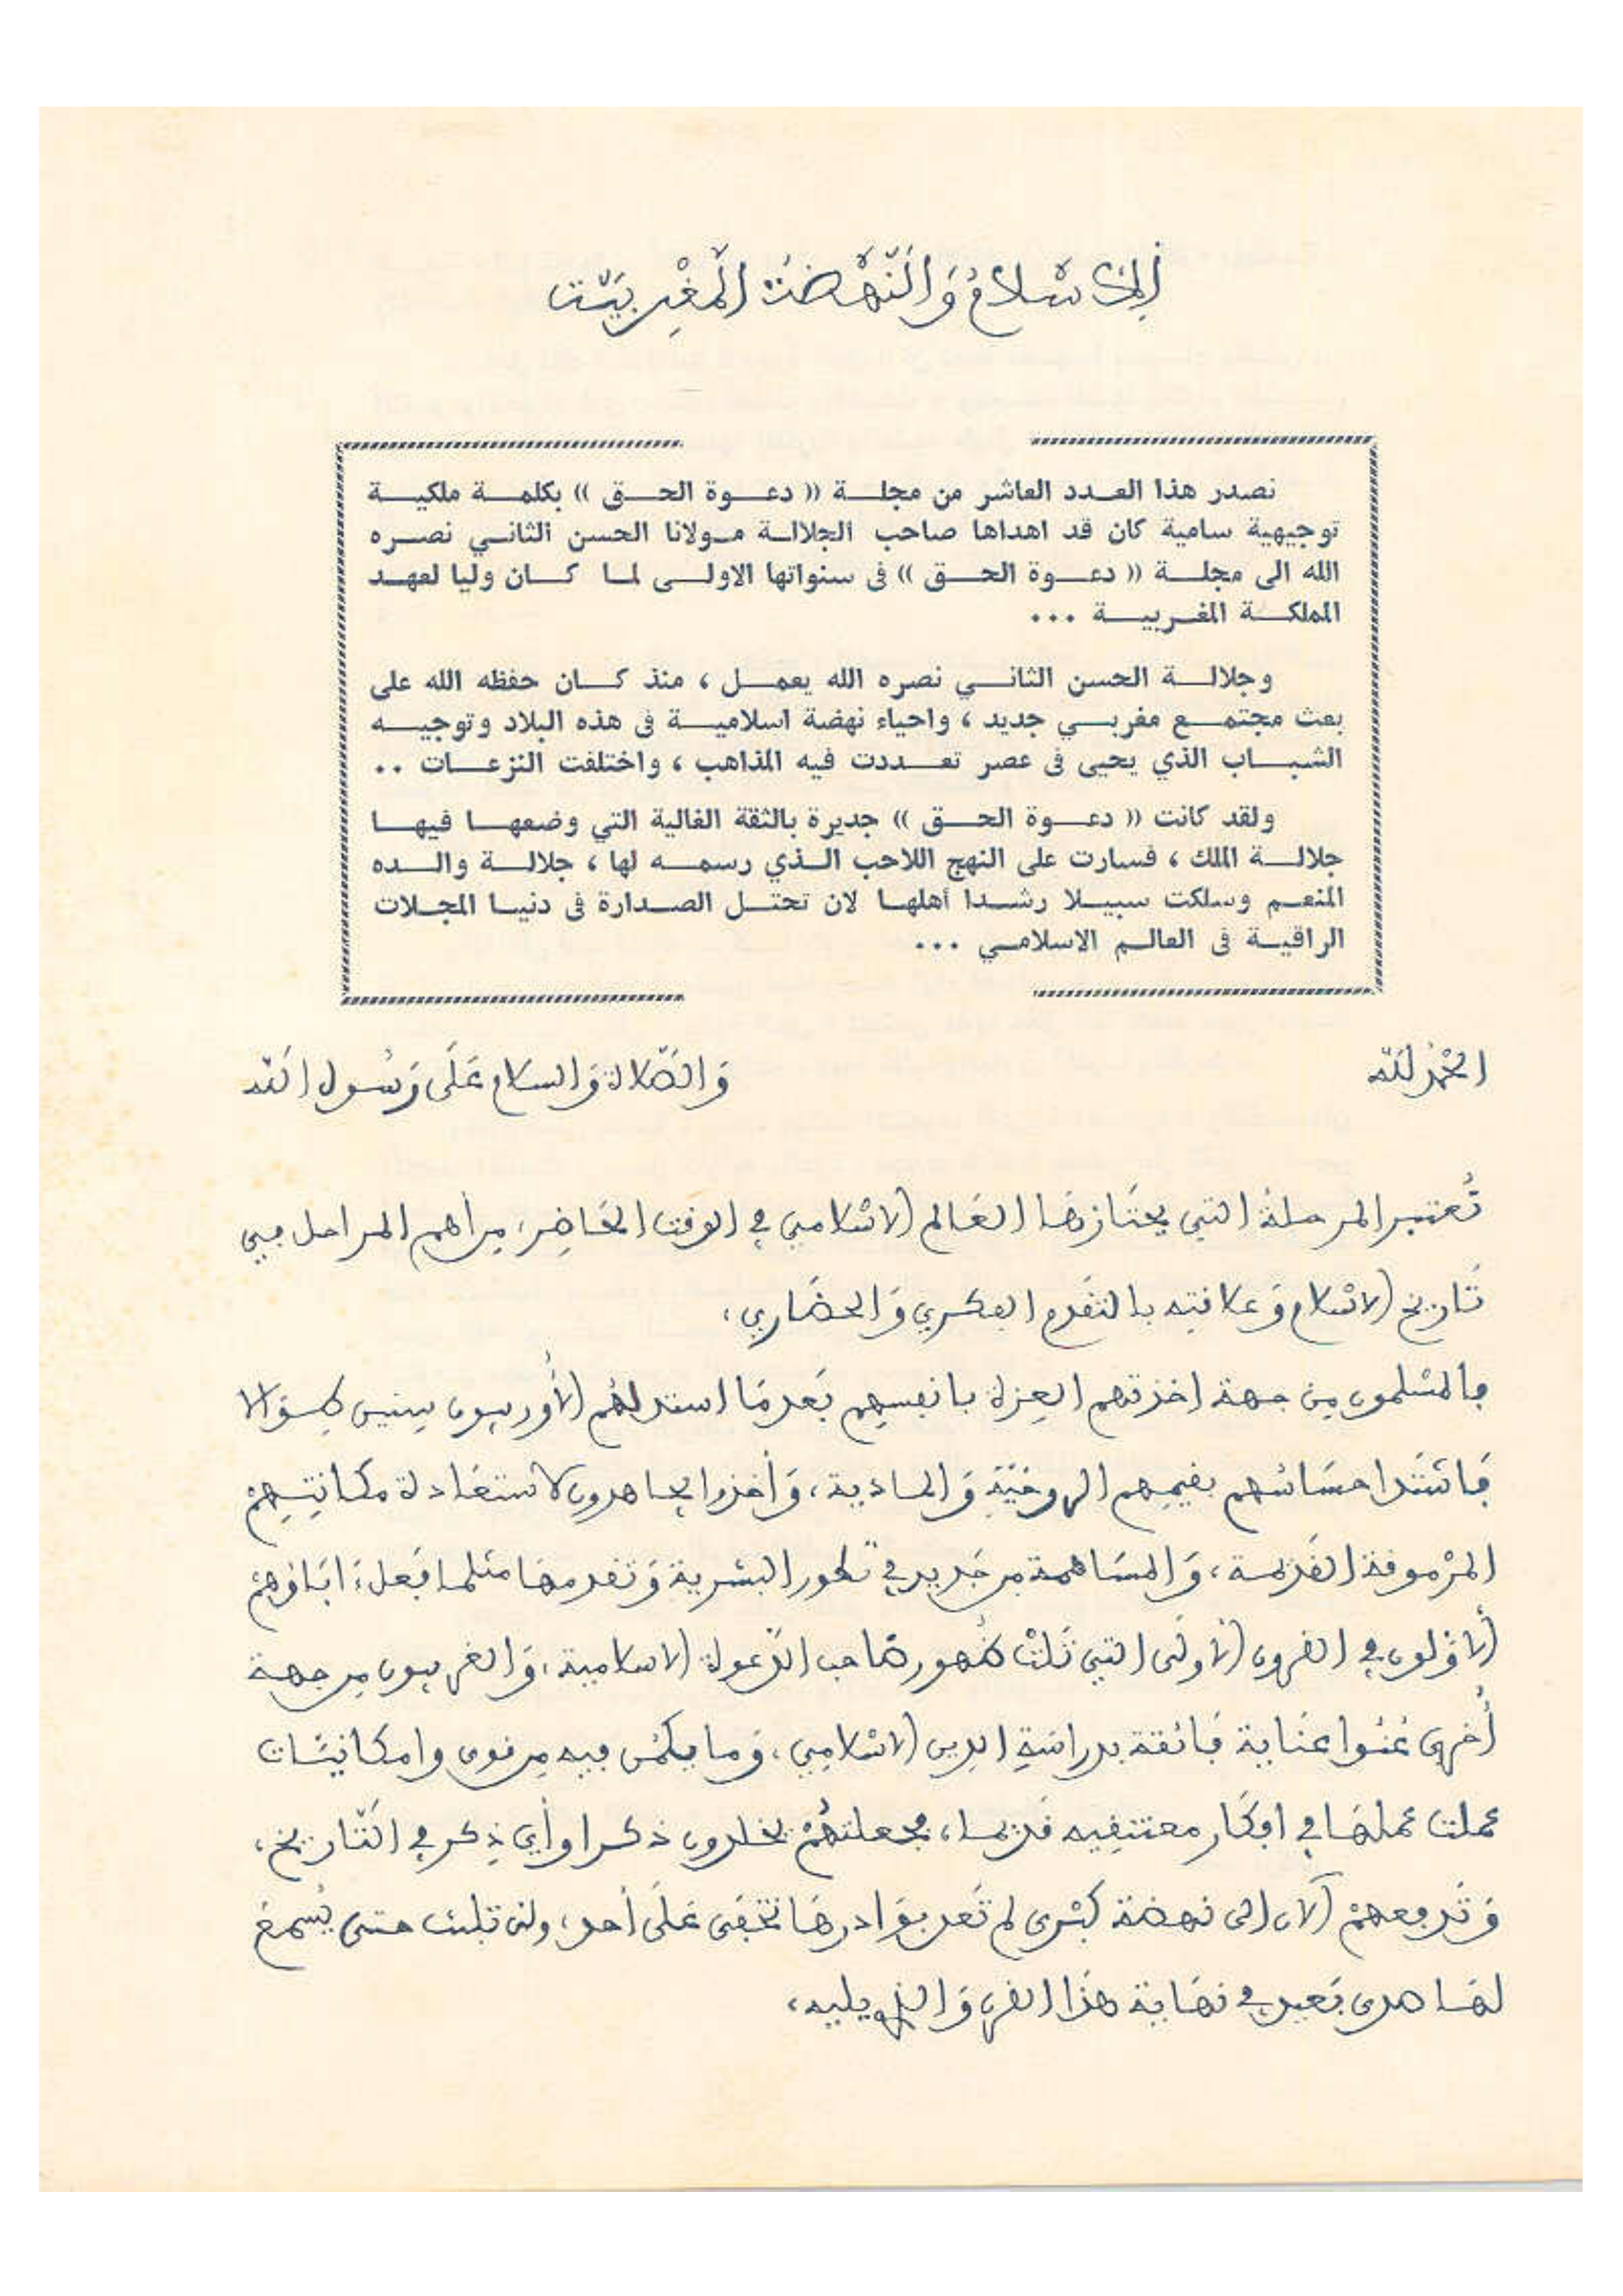 الإسلام والنهضة المغربية
نصدر هذا العدد العاشر من مجلة (( دعوة الحق )) بكلمة ملكية
توجيهية سامية كان قد اهداها صاحب الجلالة مولانا الحسن الثاني نصره
الله الى مجلة (( دعوة الحق )) فى سنواتها الاولى لما كان وليا لعهد
المملكة المغربية ...
وجلالة الحسن الثاني نصره الله يعمل ، منذ كان حفظه الله على
بعث مجتمع مغربي جديد ، واحياء نهضة اسلامية فى هذه البلاد وتوجيه
الشباب الذي يحيى فى عصر تعددت فيه المذاهب ، واختلفت النزعات ..
ولقد كانت (( دعوة الحق )) جديرة بالثقة الغالية التي وضعها فيها
جلالة الملك ، فسارت على النهج اللاحب الذي رسمه لها ، جلالة والده
المنعم وسلكت سبيلا رشدا أهلها لان تحتل الصدارة فى دنيا المجلات
الراقية فى العالم الاسلامي ...
الحمد لله
والصلاة والسلام على رسول الله
تعتبر المرحلة التي يجتازها العالم الاسلامي في الوقت الحاضر، من أهم المراحل في
تاريخ الاسلام وعلاقته بالتقدم الفكري والحضاري،
فالمسلمون من جهة اخذتهم العزة بانفسهم بعدما استذلهم الأوربيون سنين طوالا
فاشتد احساسهم بقيمهم الروحية والمادية، وأخذوا يجاهدون لاستعادة مكانتهم
المرموقة القديمة، والمساهمة من جديد في تطور البشرية وتقدمها مثلما فعل ءاباؤهم
الأولون في القرون الأولى التي تلت ظهور صاحب الدعوة الاسلامية، والغربيون من جهة
أخرى عنوا عناية فائقة بدراسة الدين الاسلامي، وما يكمن فيه من قوى وامكانيات
عملت عملها في افكار معتنقيه قديما، فجعلتهم يخلدون ذكرا وأي ذكر في التاريخ،
وتدفعهم الآن الى نهضة كبرى لم تعد بوادرها تخفى على أحد، ولن تلبث حتى يسمع
لها صدى بعيد في نهاية هذا القرن والذي يليه،